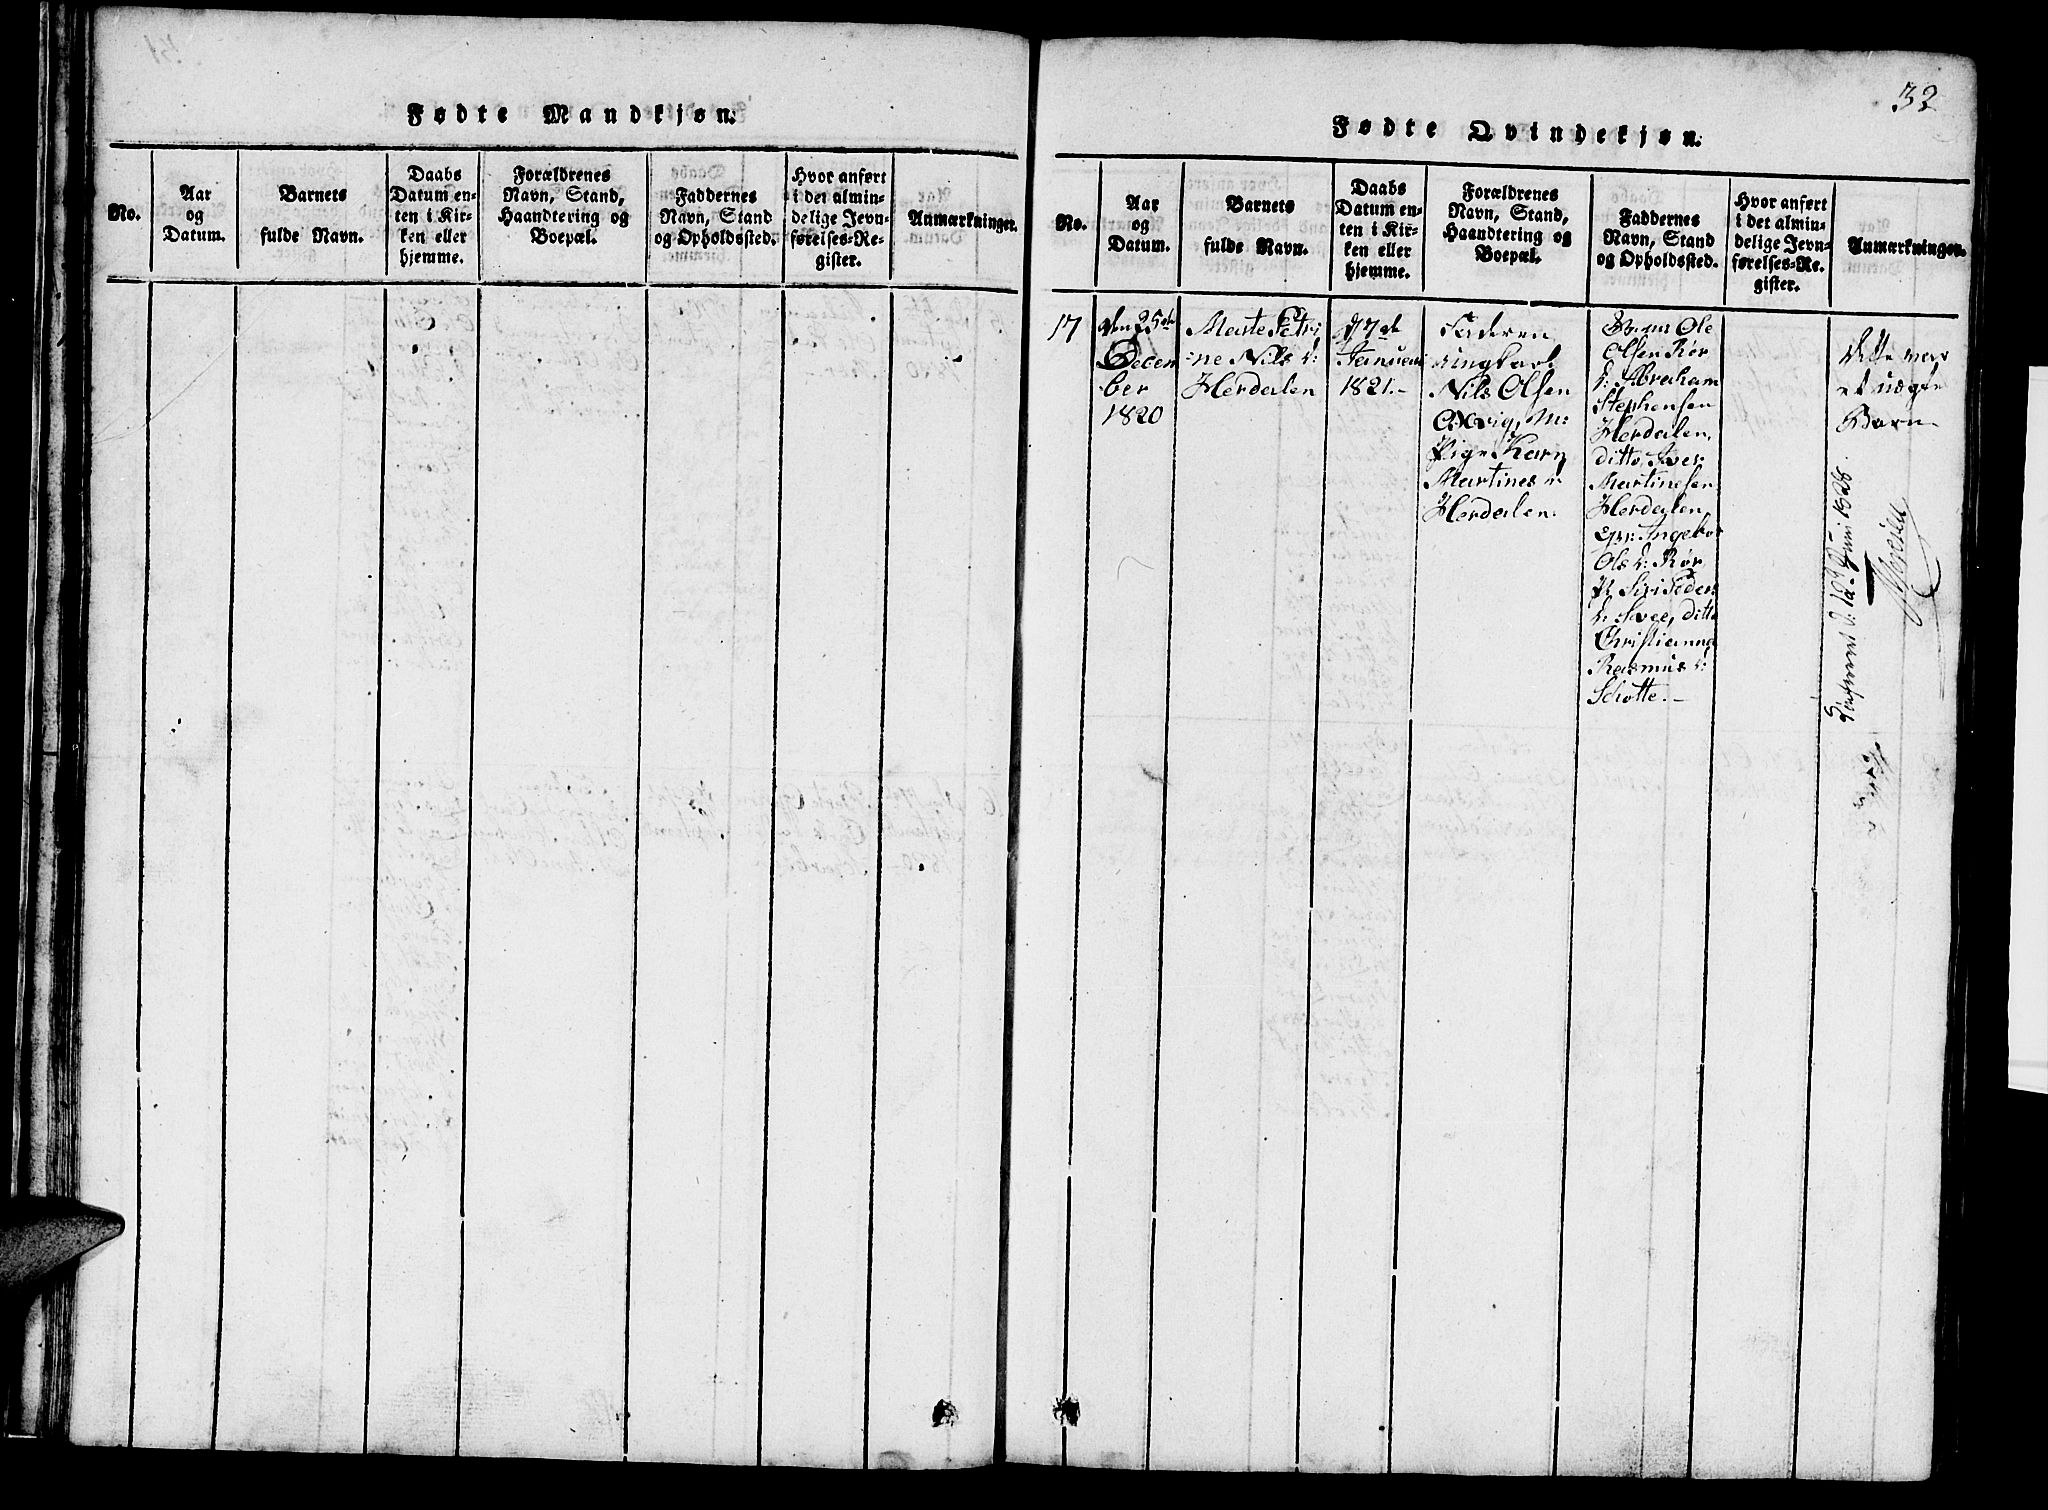 Fødte Mandkjøn.
No.
Aar
og
Datum.
Barnets
fulde Navn.
Daabs
Datum en-
ten i Kir-
ken eller
hjemme.
Forældrenes
Navn, Stand,
Haandtering og
Boepæl.
Faddernes
Navn, Stand
og Opholdssted.
Hvor anført
i det almin-
delige Jevn-
førelses-Re-
gister.
Anmærkninger.
32
Fødte Qvindekjøn.
No.
Aar
og
Datum.
Barnets
fulde Navn.
Daabs
Datum en-
ten i Kir-
ken eller
hjemme.
Forældrenes
Navn, Stand,
Haandtering og
Boepæl.
Faddernes
Navn, Stand
og Opholdssted.
Hvor anført
i det almin-
delige Jevn-
førelses-Re-
gister.
Anmærkninger.
17
den 25de
Decem
ber
1820
Marte Petri
-ne Nils d:
Herdalen
Januari
1821.-
Faderen
ungkarl
Nils Olsen
M:
Pige Karn
Martines d
Herdalen.
Ole
Olsen Rør
Abraham
Stephensen
Herdalen,
ditto Iver
Martinesen
Herdalen,
Ingebor
Ols d: Rør
P. Siri Peders
d: Svee, ditto
Christianna
Rasmus d:
Schotte.-
Dette var
et uægte
Barn
Juni 1828.